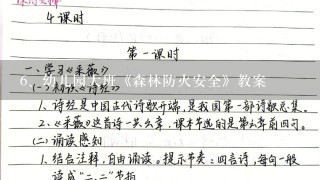 4课时
第一课时
一、学习《采薇》
6、幼儿园大班《森林防火安全》教案
1、诗经是中国古代诗歌开端,是我国第一部诗歌总集。
2、《采薇》这首诗一共六章,课本节选的是第六章前四句。
(二)诵读感知
1、结合注释,自由诵读。提示节奏:四言诗,每句一般
读成"二、二"节拍